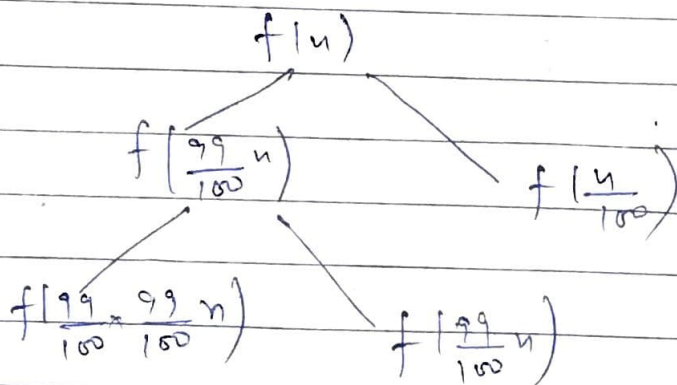 f(n)
f(99/100 n)
f(n/100)
f(99/100 × 99/100 n)
f(99/100 n)